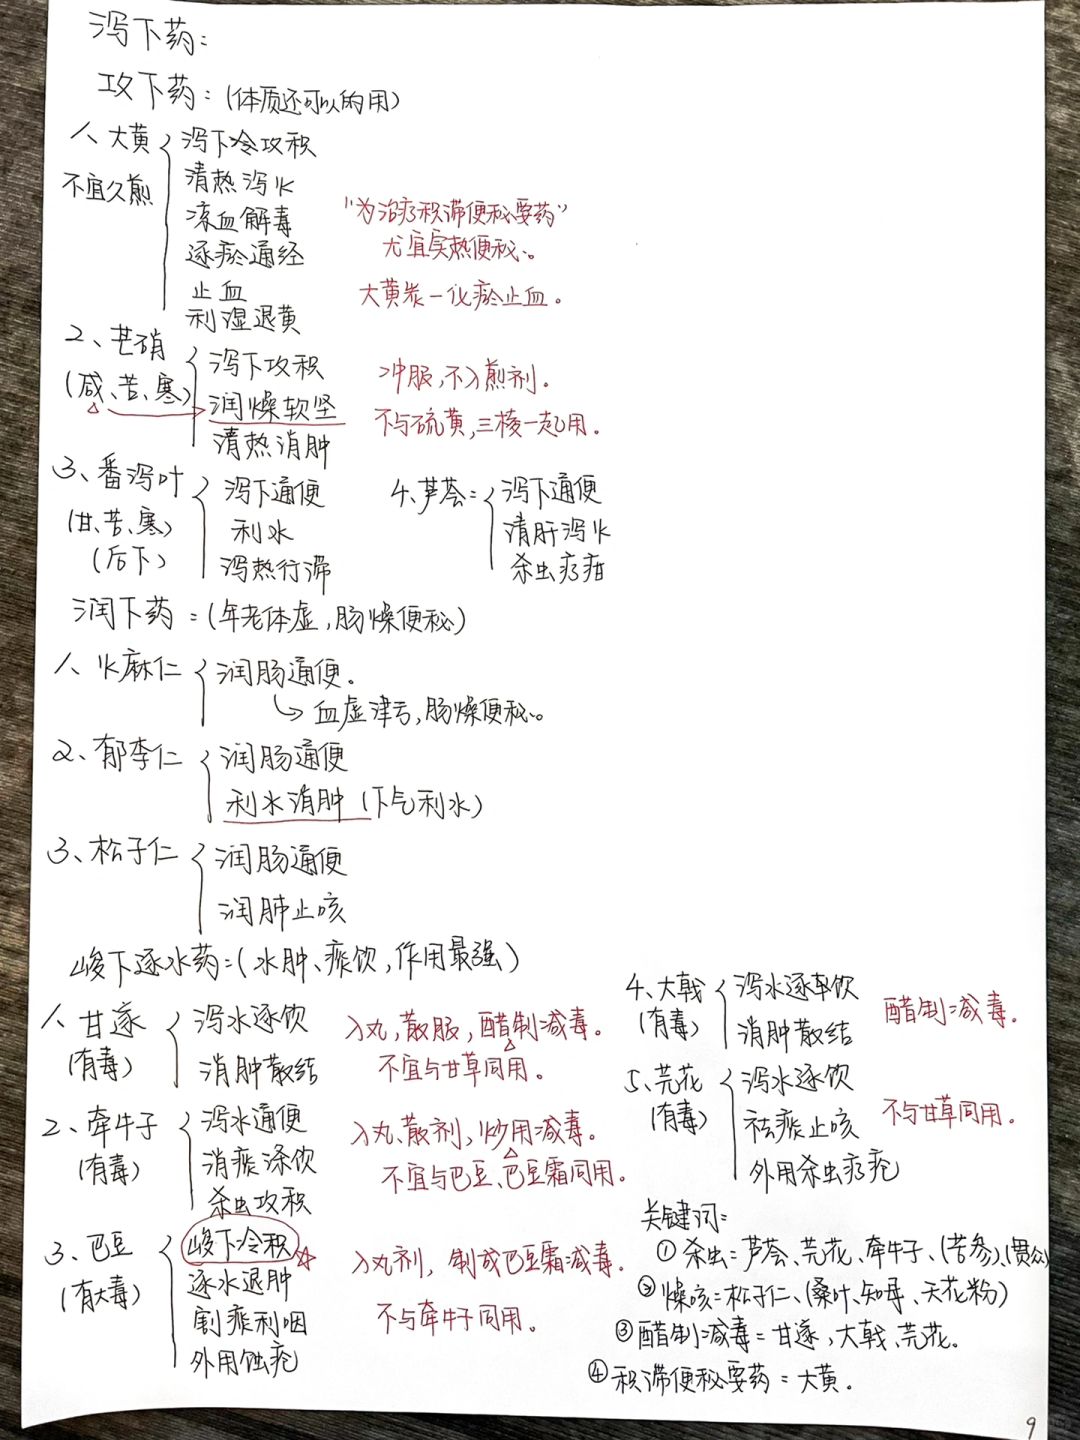 泻下药：
攻下药：(体质还可以的用)
1、大黄 泻下冷攻积
不宜久煎 清热泻火
凉血解毒 "为治疗积滞便秘要药"
逐瘀通经 尤宜实热便秘。
止血 大黄炭-化瘀止血。
利湿退黄
2、芒硝 泻下攻积 冲服,不入煎剂。
(咸、苦、寒) 润燥软坚 不与硫黄,三棱一起用.
清热消肿
3、番泻叶 泻下通便 4、芦荟： 泻下通便
(甘、苦、寒) 利水 清肝泻火
(后下) 泻热行滞 杀虫疗疳
润下药：(年老体虚,肠燥便秘)
1、火麻仁 润肠通便.
血虚津亏,肠燥便秘。
2、郁李仁 润肠通便
利水消肿 (下气利水)
3、松子仁 润肠通便
润肿止咳
峻下逐水药：(水肿、痰饮,作用最强)
1、甘遂 泻水逐饮 入丸,散服,醋制减毒。
(有毒) 消肿散结 不宜与甘草同用。
2、牵牛子 泻水通便 入丸、散剂,炒用减毒。
(有毒) 消痰涤饮 不宜与巴豆、巴豆霜同用。
杀虫攻积
3、巴豆 峻下冷积 入丸剂,制成巴豆霜减毒.
(有大毒) 逐水退肿
割痰利咽 不与牵牛子同用。
外用蚀疮
4、大戟 泻水逐饮 醋制减毒.
(有毒) 消肿散结
5、芫花 泻水逐饮
(有毒) 祛痰止咳 不与甘草同用.
外用杀虫疗疮
关键词：
①杀虫=芦荟、芫花、牵牛子、(苦参)、(贯众)
②燥咳=松子仁、(桑叶、知母、天花粉)
③醋制减毒=甘遂,大戟、芫花.
④积滞便秘要药=大黄.
9